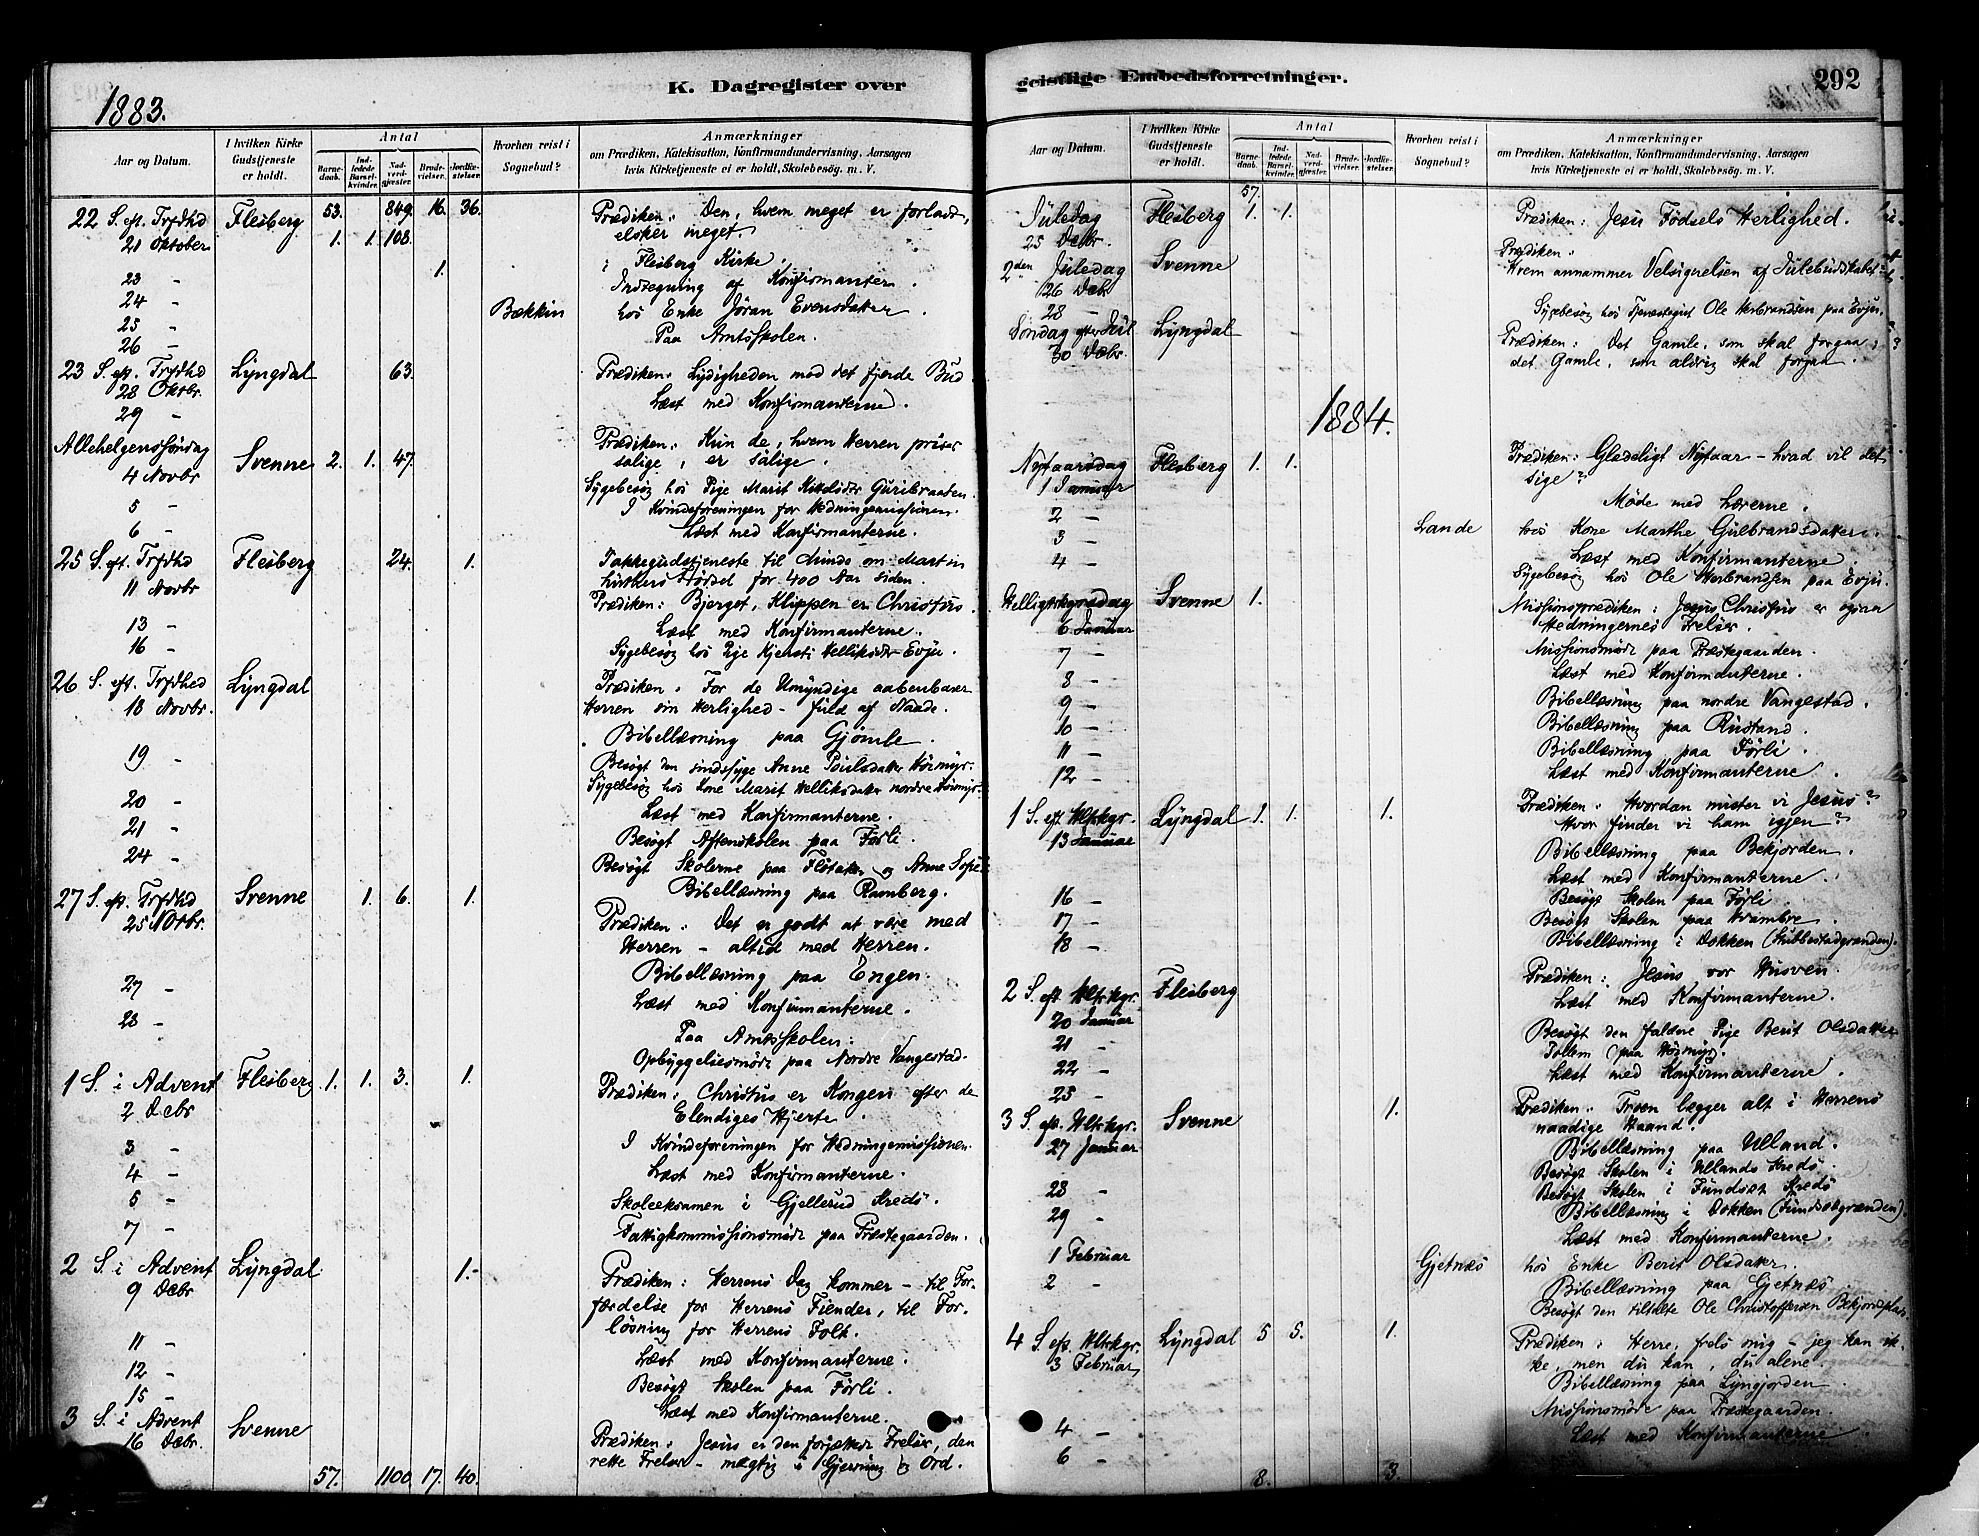 K. Dagregister over
1883.
Aar og Datum.
I hvilken Kirke Gudstjeneste er holdt.
Antal
Barnedaab.
Indledede Barselkvinder.
Nadverdgjæster.
Brudevielser.
Jordfæstelser.
Hvorhen reist i Sognebud?
Anmærkninger
om Prædiken, Katekisation, Konfirmandundervisning, Aarsagen
hvis Kirketjeneste ei er holdt, Skolebesøg. m. V.
22 S. eft. Trfdhd Flesberg 53. 849. 16. 36. Prædiken: Den, hvem meget er forladt,
21 Oktober 1. 1. 108. elsker meget.
23 " 1. i Flesberg Kirke.
24 " Indtegning af Konfirmanter.
25 " Bækkin hos Enke Jöran Evensdatter.
26 " Paa Amtsskolen.
23 S. eft. Trfdhd Lyngdal 63. Prædiken: Lydigheden mod det fjerde Bud
28 Oktbr.
29 " Læst med Konfirmanterne.
Allehelgenssöndag Svenne 2. 1. 47. Prædiken: Kun de, hvem Herren priser
4 Novbr salige, er salige.
Sygebesøg hos Pige Marit Guribraaten.
5 " I Kvindeforeningen for Hedningemissionen.
6 " Læst med Konfirmanterne.
25 S. eft. Trfdhd Flesberg 24. 1. Takkegudstjeneste til Minde om Martin
11 Novbr Luthers Födsel for 400 Aar siden.
Prædiken: Bjerget, Klippen er Christus.
13 " Læst med Konfirmanterne.
16 " Sygebesøg hos Pige Kjersti Helliksdtr Evju.
26 S. eft. Trfdhed Lyngdal Prædiken: For de Umyndige aabenbarer
18 Novbr. Herren sin Herlighed - fuld af Naade.
Bibellæsning paa Gjömle.
19 " Besøgt den sindssyge Anne Poulsdatter Hörmyr.
Sygebesøg hos Kone Marit Helliksdatter nordre Hörmyr.
20 " Læst med Konfirmanterne.
21 " Besøgt Aftenskolen paa Förli.
24 " Besøgt Skolerne paa Flötaker og Anne Sofie
Bibellæsning paa Ramberg.
27 S. eft. Trfdhd Svenne 1. 6. 1. Prædiken: Det er godt at være med
25 Novbr. Herren - altid med Herren.
Bibellæsning paa Engen.
27 " Læst med Konfirmanterne.
28 " Paa Amtsskolen.
Opbyggelsesmöde paa Nordre Vangestad.
1 S. i Advent Flesberg 1. 1. 3. 1. Prædiken: Christus er Kongen efter de
2 Decbr Elendiges Hjerte.
3 " I Kvindeforeningen for Hedningemissionen.
4 " Læst med Konfirmanterne.
5 " Skoleeksamen i Gjellerud Kreds.
7 " Fattigkommissionsmöde paa Præstegaarden.
2 S. i Advent Lyngdal 1. Prædiken: Herrens Dag kommer - til For-
9 Decbr færdelse for Herrens Fiender, til For-
lösning for Herrens Folk.
11 " Læst med Konfirmanterne.
12 " Besøgt Skolen paa Förli.
15 " Læst med Konfirmanterne.
3 S. i Advent Svenne Prædiken: Jesus er den forjættede Frelser, den
16 Decbr. rette Frelser - mægtig i Gjerning og Ord.
57. 1100. 17. 40.
geistlige Embedsforretninger.
292
Aar og Datum.
I hvilken Kirke Gudstjeneste er holdt.
Antal
Barnedaab.
Indledede Barselkvinder.
Nadverdgjæster.
Brudevielser.
Jordfæstelser.
Hvorhen reist i Sognebud?
Anmærkninger
om Prædiken, Katekisation, Konfirmandundervisning, Aarsagen
hvis Kirketjeneste ei er holdt, Skolebesøg. m. V.
57.
Juledag Flesberg 1. 1. Prædiken: Jesu Födsels Herlighed.
25 Decbr.
2den Juledag Svenne Prædiken:
26 Decbr Hvem annammer Velsignelsen af Julebudskabet?
28 " Sygebesøg hos Ole Herbrandsen paa Evju.
Söndag efter Jul Lyngdal Prædiken: Det Gamle, som skal forgaa;
30 Decbr. det Gamle, som aldrig skal forgaa.
1884.
Nytaarsdag Flesberg 1. 1. Prædiken: Glædeligt Nytaar - hvad vil det
1 Januar sige?
2 - Möde med Lærerne.
3 - Lande hos Kone Marthe Gulbrandsdatter.
4 - Læst med Konfirmanterne.
Sygebesøg hos Ole Herbrandsen paa Evju.
Helligtrkgrsdag Svenne 1. Missionsprædiken: Jesus Christus er ogsaa
6 Januar Hedningernes Frelser.
7 - Missionsmöde paa Præstegaarden.
8 - Læst med Konfirmanterne.
9 - Bibellæsning paa nordre Vangestad.
10 - Bibellæsning paa Rustand.
11 - Bibellæsning paa Förli.
12 - Læst med Konfirmanterne.
1 S. eft Hltrkgr. Lyngdal 1. 1. 1. Prædiken: Hvordan mister vi Jesus?
13 Januar Hvor finder vi ham igjen?
Bibellæsning paa Bekjorden.
Læst med Konfirmanterne.
16 - Besøgt Skolen paa Förli.
17 - Besøgt Skolen paa
18 - Bibellæsning i Dokken (Stubbestadgrænden).
2 S. eft Hltrkgr. Flesberg Prædiken: Jesus vor Husven.
20 Januar Læst med Konfirmanterne.
21 - Besøgt den faldne Pige Berit Olsdatter
22 - Tollem (paa Hörmyr).
25 - Læst med Konfirmanterne.
3 S. eft. Hltrkgr. Svenne 1. Prædiken: Troen lægger alt i Herrens
27 Januar naadige Haand.
Bibellæsning paa Ulland.
Besøgt Skolen i Ullands Kreds.
28 - Besøgt Skolen i Kreds
29 - Bibellæsning i Dokken
Læst med Konfirmanterne.
1 Februar Gjetnæs hos Enke Berit Olsdatter.
2 - Bibellæsning paa Gjetnæs.
Besøgt den tiltalte Ole Christoffersen Bekjordsplads.
4 S. eft. Hltrkgr. Lyngdal 5 5. 1. Prædiken: Herre, frels mig - jeg kan ik-
3 Februar ke, men du kan, du alene.
Bibellæsning paa Lyngjorden.
4 - Missionsmöde paa Præstegaarden.
6 - Læst med Konfirmanterne
8. 3.